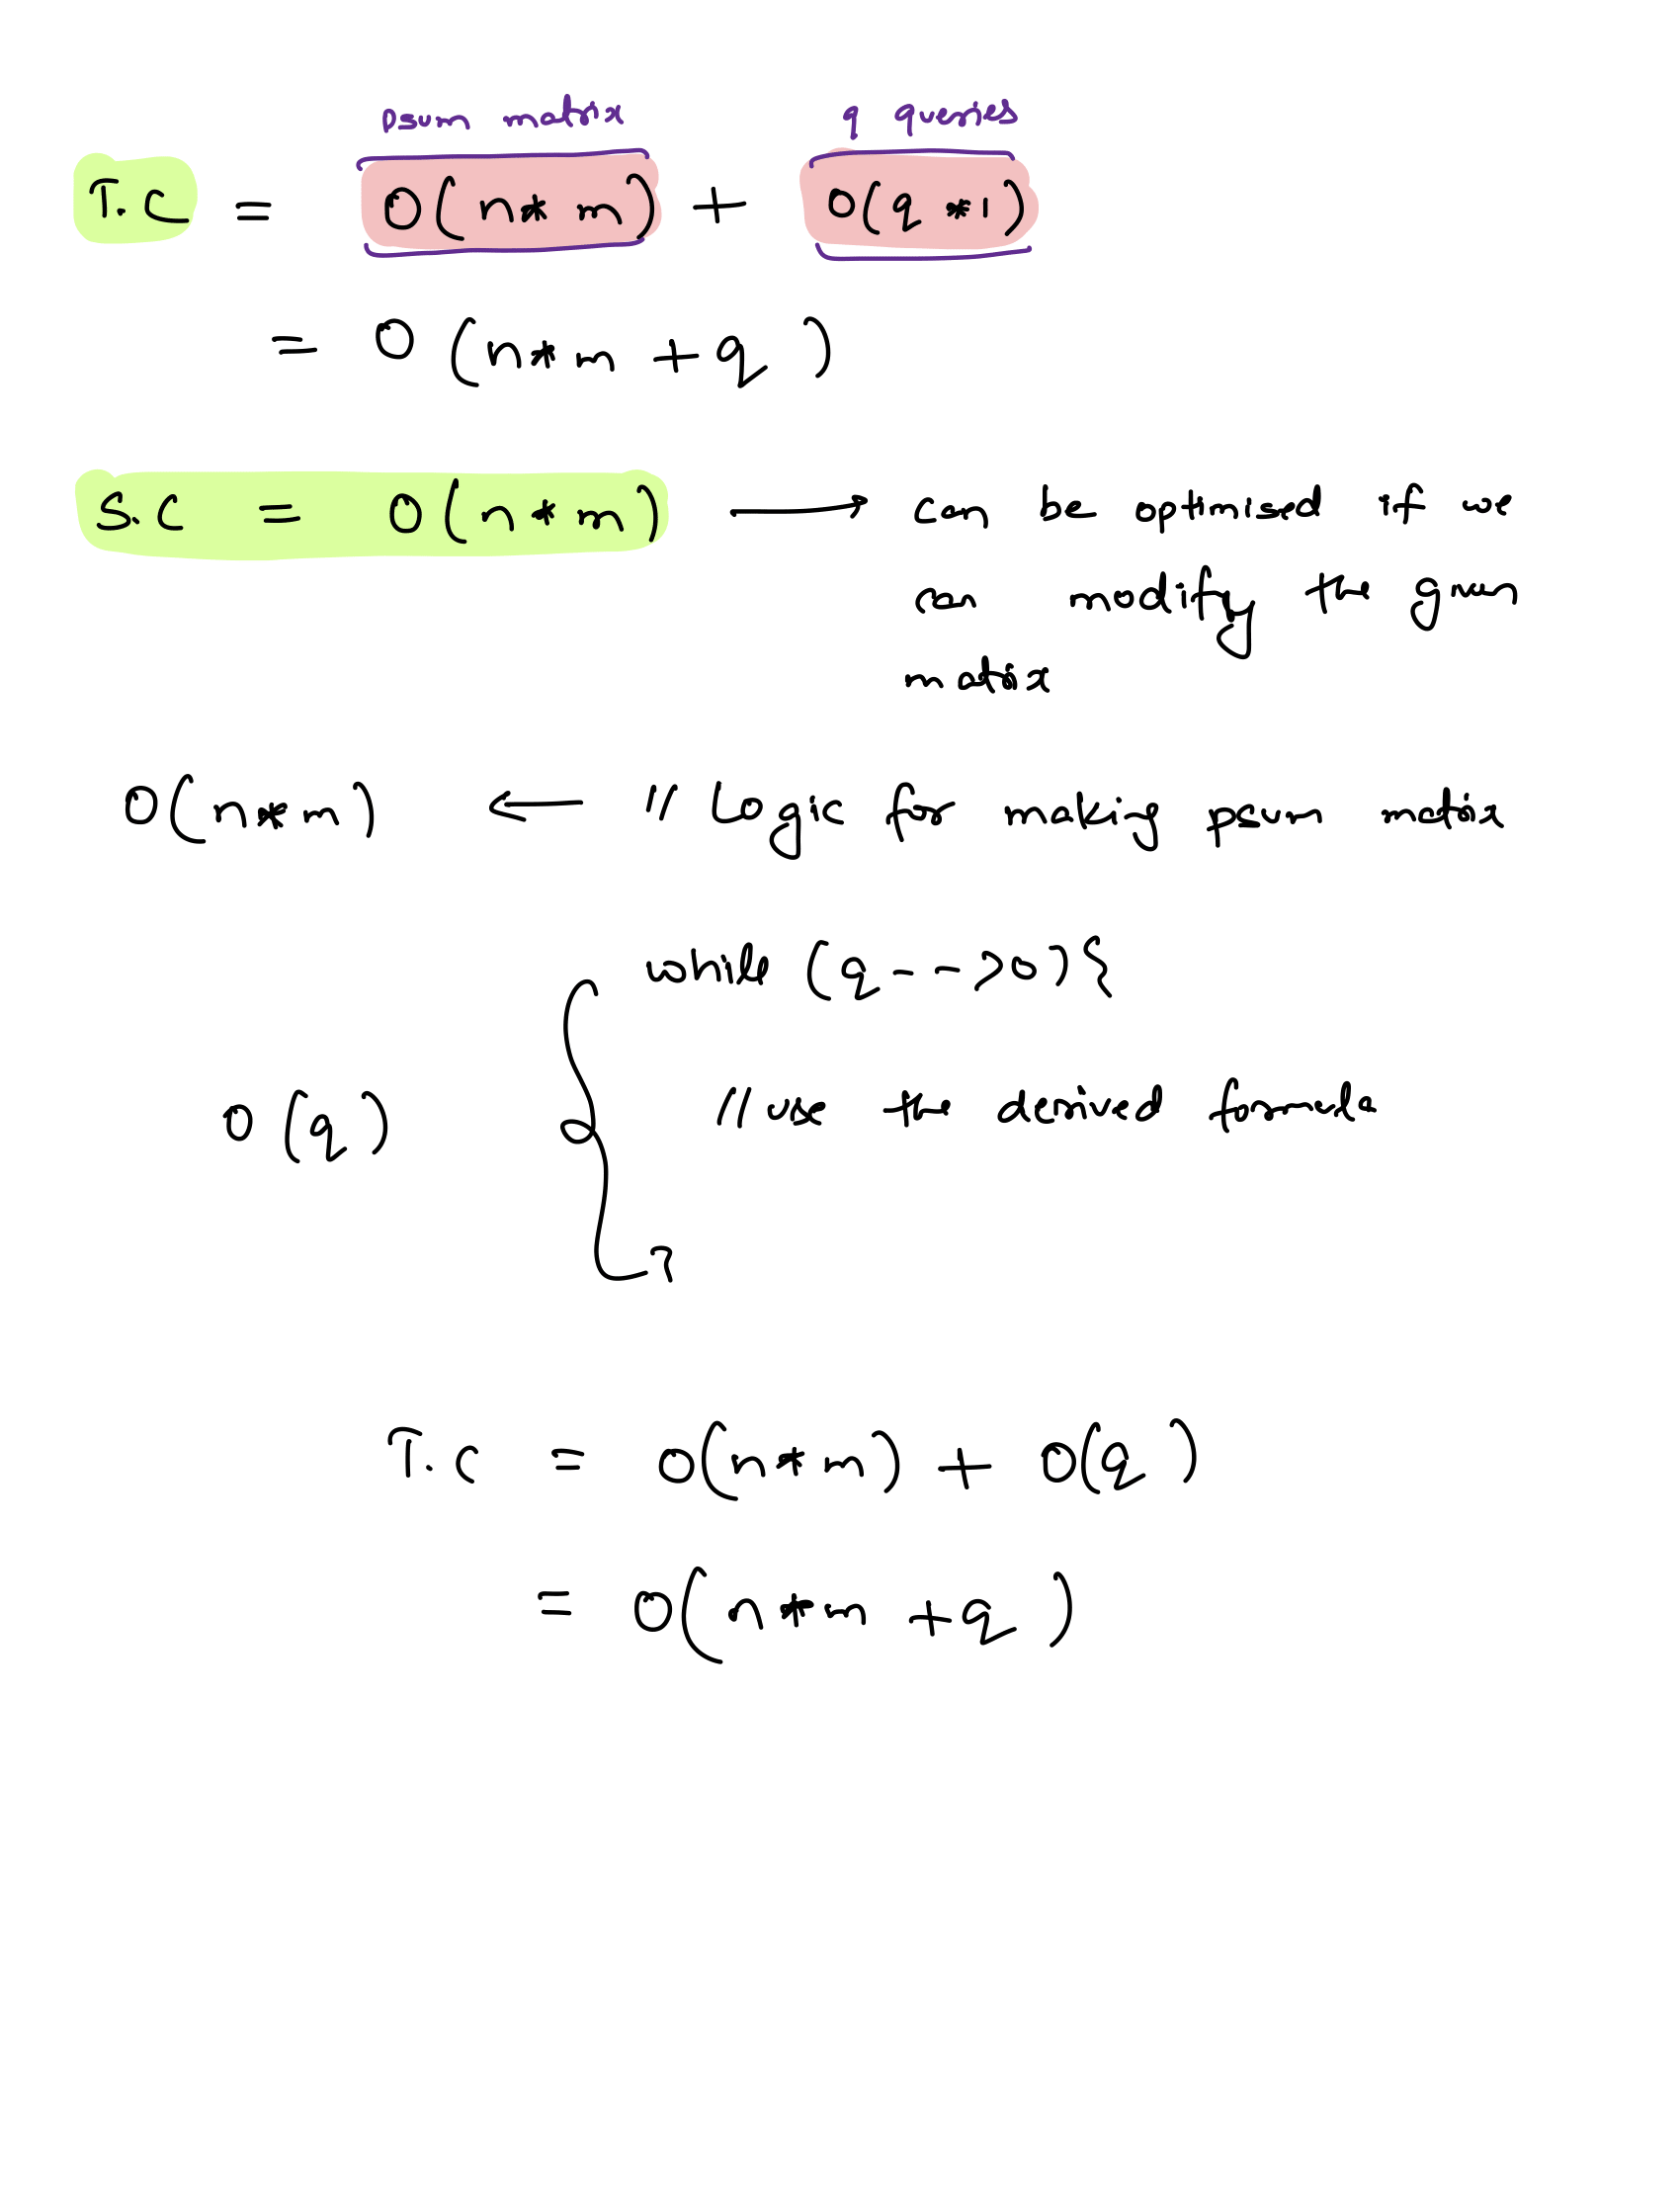 psum matrix q queries
T.C = O(n* m) + O(q *1)
= O (n*m +q )
S.C = O(n*m) → can be optimised if we
can modify the given
matrix
O(n*m) ← // Logic for making psum matrix
while (q-->0){
O(q) // use the derived formula
}
T.C = O(n*m) + O(q )
= O(n*m +q )